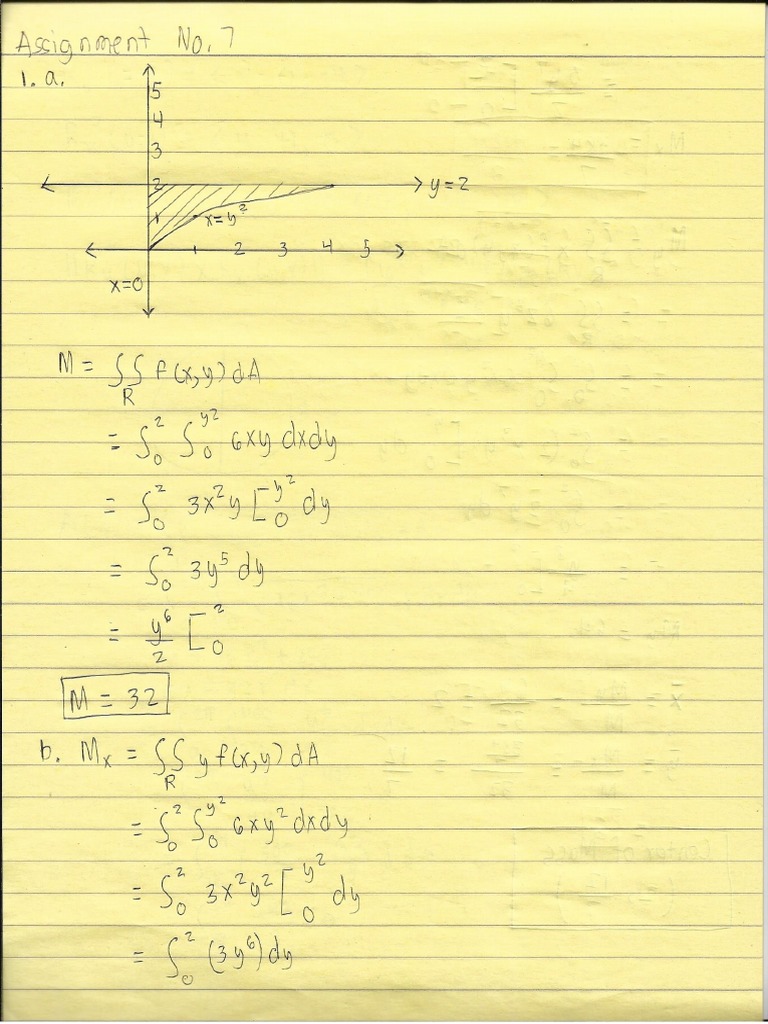 Assignment No. 7
1. a.
5
4
3
2 y=2
1 x=y²
1 2 3 4 5
x=0
M = ∫∫_R f(x,y) dA
= ∫₀² ∫₀^y² 6xy dxdy
= ∫₀² 3x²y [₀^y² dy
= ∫₀² 3y⁵ dy
= y⁶/2 [₀²
M = 32
b. Mₓ = ∫∫_R y f(x,y) dA
= ∫₀² ∫₀^y² 6xy² dxdy
= ∫₀² 3x²y² [₀^y² dy
= ∫₀² (3y⁶) dy